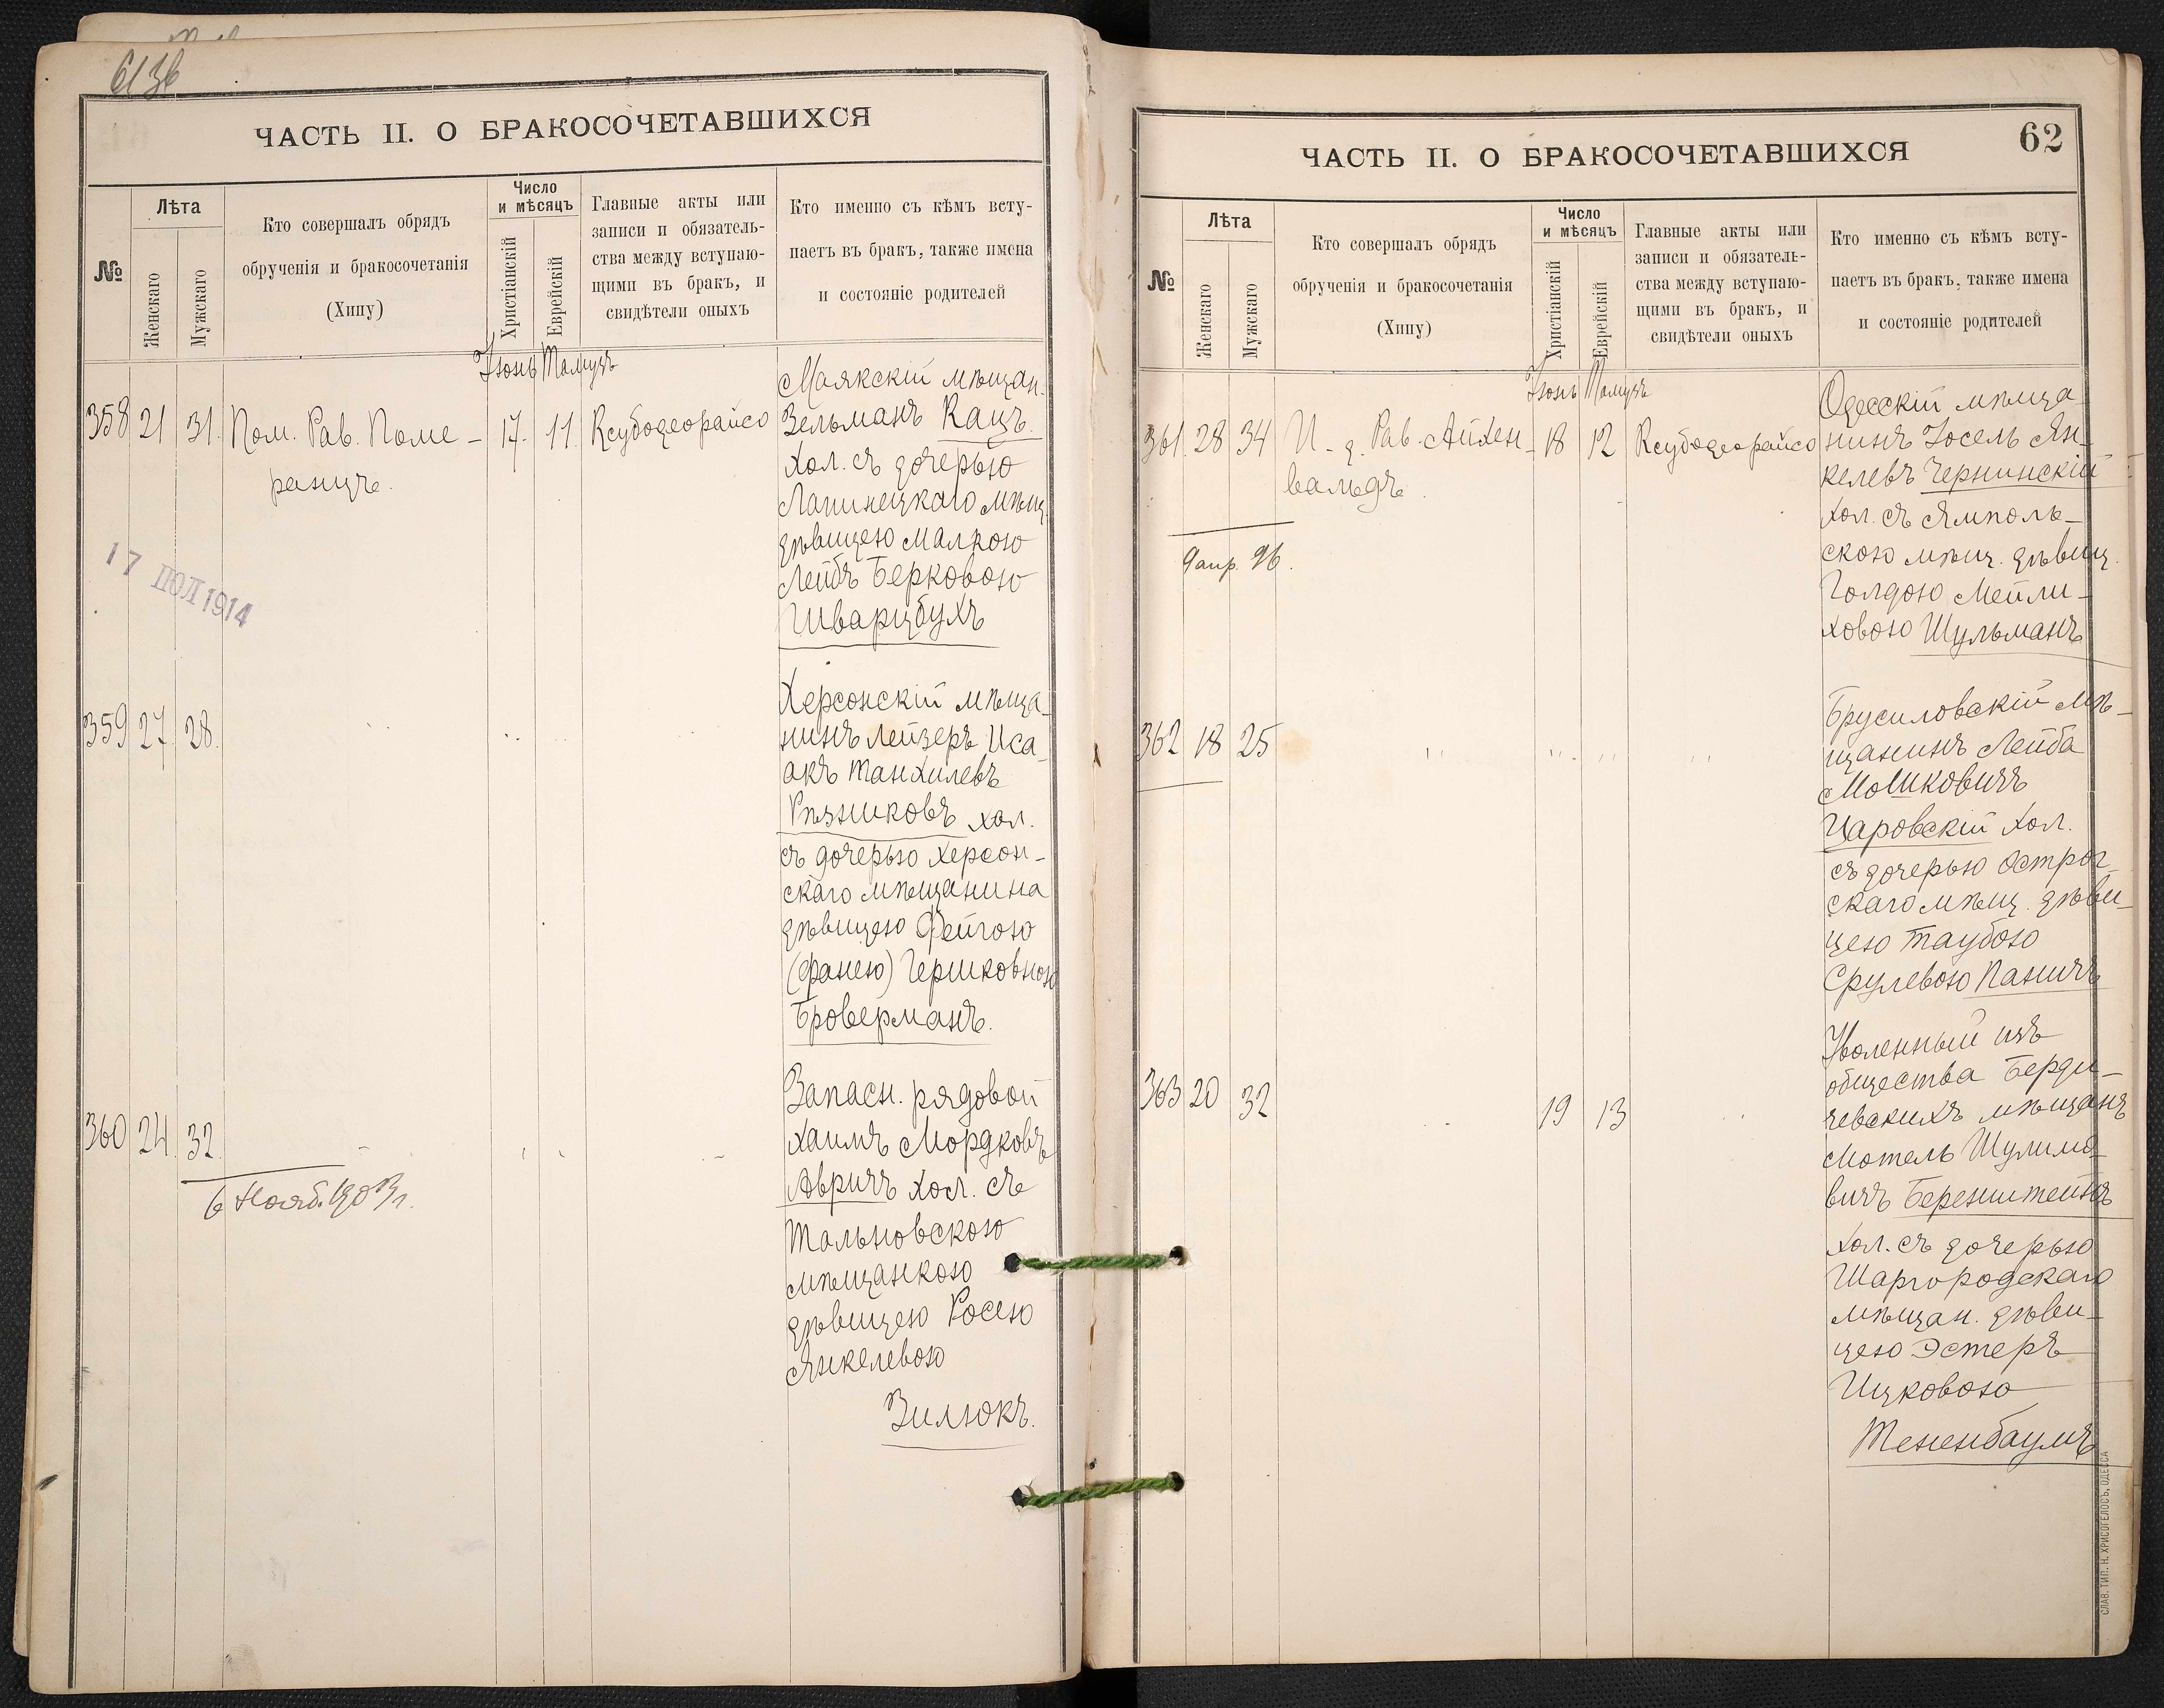 61 зб
ЧАСТЬ II. О БРАКОСОЧЕТАВШИХСЯ
№
Лѣта
Женскаго
Мужскаго
Кто совершалъ обрядъ
обрученія и бракосочетанія
(Хипу)
Число
и мѣсяцъ
Христіанскій
Еврейскій
Главные акты или
записи и обязатель-
ства между вступаю-
щими въ бракъ, и
свидѣтели оныхъ
Кто именно съ кѣмъ всту-
паетъ въ бракъ, также имена
и состояніе родителей
Іюнь Тамузъ
358 21 31. Пом. Рав. Поме- 17. 11. Ксубодеорайсо
ранцъ.
Маякскій мѣщан.
Зельманъ Кацъ.
хол. съ дочерью
Лапинецкаго мѣщ.
дѣвицею Малкою
Лейбъ Берковою
Шварцбухъ
17 ІЮЛ 1914
359 27. 28.
Херсонскій мѣща-
нинъ Лейзеръ Иса-
акъ Танхилевъ
Рѣзниковъ хол.
съ дочерью Херсон-
скаго мѣщанина
дѣвицею Фейгою
(Фанею) Гершковною
Броверманъ.
360 24. 32.
6 Нояб. 1903 г.
Запасн. рядовой
Хаимъ Мордковъ
Авричъ хол. съ
Тальновскою
мѣщанкою
дѣвицею Росею
Янкелевою
Зилюкъ.
62
ЧАСТЬ II. О БРАКОСОЧЕТАВШИХСЯ
№
Лѣта
Женскаго
Мужскаго
Кто совершалъ обрядъ
обрученія и бракосочетанія
(Хипу)
Число
и мѣсяцъ
Христіанскій
Еврейскій
Главные акты или
записи и обязатель-
ства между вступаю-
щими въ бракъ, и
свидѣтели оныхъ
Кто именно съ кѣмъ всту-
паетъ въ бракъ, также имена
и состояніе родителей
Іюнь Тамузъ
361. 28 34 И. д. Рав. Айхен- 18 12 Ксубодеорайсо
вальдъ.
9 апр. 96.
Одесскій мѣща-
нинъ Іосель Ян-
келевъ Чернинскій
хол. съ Ямполь-
скою мѣщ. дѣвиц.
Голдою Мейли-
ховою Шульманъ
362 18 25 " " " "
Брусиловскій мѣ-
щанинъ Лейба
Мошковичъ
Царовскій хол.
съ дочерью Острог-
скаго мѣщ. дѣви-
цею Таубою
Срулевою Паничъ
363 20 32 19 13
Уволенный изъ
общества Берди-
чевскихъ мѣщанъ
Мотель Шулимо-
вичъ Беренштейнъ
хол. съ дочерью
Шаргородскаго
мѣщан. дѣви-
цею Эстеръ
Ицковою
Тененбаумъ
СЛАВ. ТИП. Н. ХРИСОГЕЛОСЪ, ОДЕССА